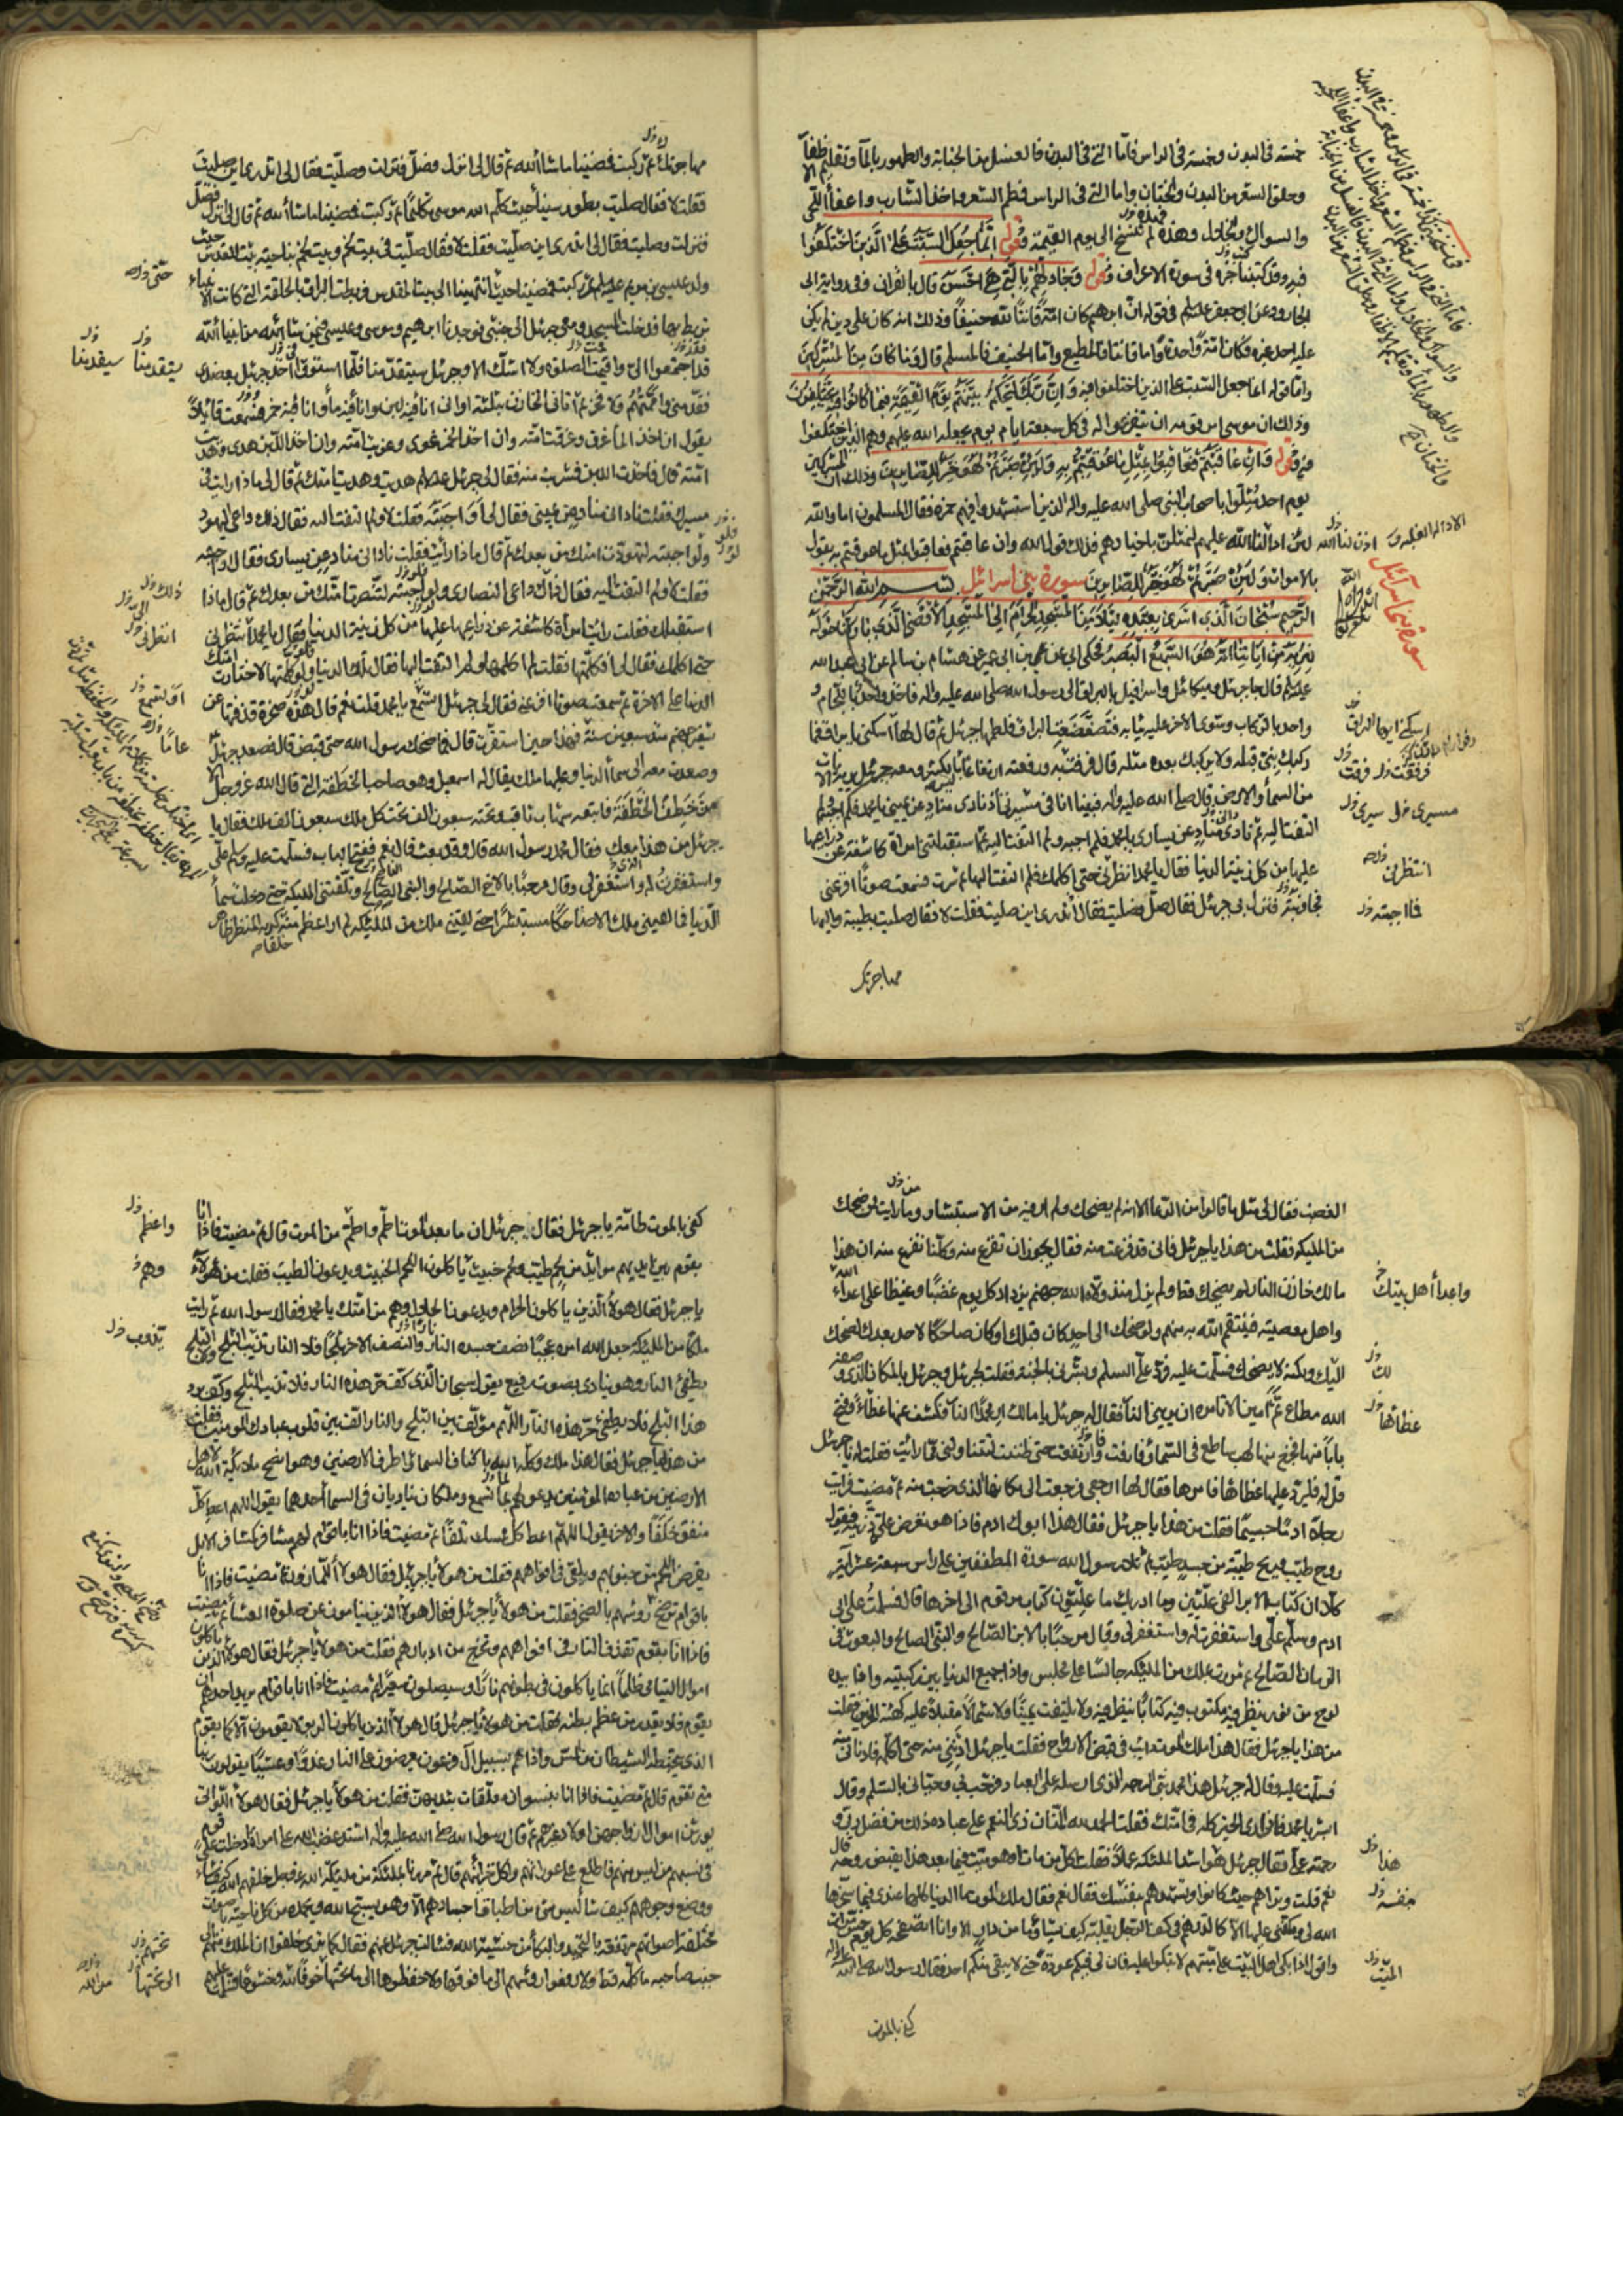 خمسة فی البدن وخمسة فی الراس فاما التی فی البدن فالغسل من الجنابة والطهور بالمآ وتقلیم الاظفار
وحلق الشعر من البدن والختان واما التی فی الراس فطم الشعر واخذ الشارب واعفآ اللحی
والسواك والخلال وهذه لم تنسخ الی یوم القیمة وقوله انما جعل السبت علی الذین اختلفوا
فیه وقد کتبنا خبره فی سورة الاعراف وقوله وجادلهم بالتی هی احسن قال بالقرآن وفی روایة ابی
الجارود عن ابی جعفر علیه السلم فی قوله ان ابرهیم کان امة قانتا لله حنیفا وذلك انه کان علی دین لم یکن
علیه احد غیره فکان امة واحدة واما قانتا فالمطیع واما الحنیف فالمسلم قال وما کان من المشرکین
واما قوله انما جعل السبت علی الذین اختلفوا فیه وان ربك لیحکم بینهم یوم القیمة فیما کانوا فیه یختلفون
وذلك ان موسی امر قومه ان یتفرغوا لله فی کل سبعة ایام یوم یجعله الله علیهم وهم الذین اختلفوا
فیه وقوله وان عاقبتم فعاقبوا بمثل ما عوقبتم به ولئن صبرتم لهو خیر للصابرین وذلك ان المشرکین
یوم احد مثلوا باصحاب النبی صلی الله علیه واله الذین استشهدوا فیهم حمزة فقال المسلمون اما والله
لئن ادالنا الله علیهم لنمثلن باخیارهم فذلك قول الله وان عاقبتم فعاقبوا بمثل ما عوقبتم به یقول
بالاموات ولئن صبرتم لهو خیر للصابرین سورة بنی اسرائیل بسم الله الرحمن
الرحیم سبحان الذی اسری بعبده لیلا من المسجد الحرام الی المسجد الاقصی الذی بارکنا حوله
لنریه من آیاتنا انه هو السمیع البصیر فحکی ابی عن محمد بن ابی عمیر عن هشام بن سالم عن ابی عبد الله
علیه السلم قال جا جبرئیل ومیکائیل واسرافیل بالبراق الی رسول الله صلی الله علیه واله فاخذ واحد باللجام و
واحد بالرکاب وسوی الاخر علیه ثیابه فتضعضعت البراق فلطمها جبرئیل ثم قال لها اسکنی یا براق فما
رکبك نبی قبله ولا یرکبك بعده مثله قال فرفت به ورفعته ارتفاعا لیس بالکثیر ومعه جبرئیل یریه الآیات
من السمآ والارض قال صلی الله علیه واله فبینا انا فی مسیری اذ نادی مناد عن یمینی یا محمد فلم اجبه ولم
التفت الیه ثم نادی مناد عن یساری یا محمد فلم اجبه ولم التفت الیه ثم استقبلتنی امراة کاشفة عن ذراعیها
علیها من کل زینة الدنیا فقال یا محمد انظرنی حتی اکلمك فلم التفت الیها ثم سرت فسمعت صوتا افزعنی
فجاوزته فنزل بی جبرئیل فقال صل فصلیت فقال اتدری این صلیت فقلت لا فقال صلیت بطیبة والیها
مهاجرتك
سورة بنی اسرائیل
انتظرنی
فما اجبته
مهاجرتك ثم رکبت فمضینا ما شاء الله ثم قال لی انزل وصل فنزلت وصلیت فقال لی اتدری این صلیت
فقلت لا فقال صلیت بطور سینآ حیث کلم الله موسی تکلیما ثم رکبت فمضینا ما شا الله ثم قال لی انزل فصل
فنزلت وصلیت فقال لی اتدری این صلیت فقلت لا فقال صلیت فی بیت لحم وبیت لحم بناحیة بیت المقدس حیث
ولد عیسی بن مریم علیه السلم ثم رکبت فمضینا حتی انتهینا الی بیت المقدس فربطت البراق بالحلقة التی کانت الانبیآء
تربط بها فدخلت المسجد ومعی جبرئیل الی جنبی فوجدنا ابرهیم وموسی وعیسی فیمن شا الله من انبیآ الله
قد اجتمعوا الی واقیمت الصلوة ولا اشك الا وجبرئیل سیتقدمنا فلما استووا اخذ جبرئیل بعضدی
فقدمنی واممتهم ولا فخر ثم اتانی الخازن بثلثة اوانی انا فیه لبن وانا فیه مآ وانا فیه خمر فسمعت قائلا
یقول ان اخذ المآ غرق وغرقت امته وان اخذ الخمر غوی وغویت امته وان اخذ اللبن هدی وهدیت
امته قال فاخذت اللبن فشربت منه فقال لی جبرئیل علیه السلم هدیت وهدیت امتك ثم قال لی ماذا رایت فی
مسیرك فقلت نادانی مناد عن یمینی فقال لی او اجبته فقلت لا ولم التفت الیه فقال ذاك داعی الیهود
ولو اجبته لتهودت امتك من بعدك ثم قال ماذا رایت فقلت نادانی مناد عن یساری فقال او اجبته
فقلت لا ولم التفت الیه فقال ذاك داعی النصاری ولو اجبته لتنصرت امتك من بعدك ثم قال ماذا
استقبلك فقلت رایت امرآة کاشفة عن ذراعیها علیها من کل زینة الدنیا فقال یا محمد انتظرنی
حتی اکلمك فقال لی افکلمتها فقلت لم اکلمها ولم التفت الیها فقال تلك الدنیا ولو کلمتها لاختارت امتك
الدنیا علی الاخرة ثم سمعت صوتا افزعنی فقال لی جبرئیل اتسمع یا محمد قلت نعم قال هذه صخرة قذفتها عن
شفیر جهنم منذ سبعین سنة فهذا حین استقرت قال فما ضحك رسول الله حتی قبض قال فصعد جبرئیل
وصعدت معه الی سمآ الدنیا وعلیها ملك یقال له اسمعیل وهو صاحب الخطفة التی قال الله عز وجل الا
من خطف الخطفة فاتبعه شهاب ثاقب وتحته سبعون الف ملك تحت کل ملك سبعون الف ملك فقال یا
جبرئیل من هذا معك فقال محمد رسول الله قال وقد بعث قال نعم ففتح الباب فسلمت علیه وسلم علی
واستغفرت له واستغفر لی وقال مرحبا بالاخ الصالح والنبی الصالح وتلقتنی الملئکة حتی دخلت سمآ
الدنیا فما لقینی ملك الا ضاحکا مستبشرا حتی لقینی ملك من الملئکة لم ار اعظم منه کریه المنظر ظاهر
الغضب فقال لی مثل ما قالوا من الدعآ الا انه لم یضحك ولم ار فیه من الاستبشار وما رایت ممن ضحك
من الملئکة فقلت من هذا یا جبرئیل فانی قد فزعت منه فقال یجوز ان تفزع منه وکلنا نفزع منه ان هذا
مالك خازن النار لم یضحك قط ولم یزل منذ ولاه الله جهنم یزداد کل یوم غضبا وغیظا علی اعدآء الله
واهل معصیته فینتقم الله به منهم ولو ضحك الی احد کان قبلك او کان ضاحکا لاحد بعدك لضحك
الیك ولکنه لا یضحك فسلمت علیه فرد علی السلم وبشرنی بالجنة فقلت لجبرئیل وجبرئیل بالمکان الذی وصفه
الله مطاع ثم امین الا تامره ان یرینی النار فقال له جبرئیل یا مالك ار محمدا النار فکشف عنها غطآءها وفتح
بابا منها فخرج منها لهب ساطع فی السمآ وفارت وارتفعت حتی ظننت لیتناولنی مما رایت فقلت له یا جبرئیل
قل له فلیرد علیها غطاها فامرها فقال لها ارجعی فرجعت الی مکانها الذی خرجت منه ثم مضیت فرایت
رجلا ادما جسیما فقلت من هذا یا جبرئیل فقال هذا ابوك ادم فاذا هو تعرض علیه ذریته فیقول
روح طیب وریح طیبة من جسد طیب ثم تلا رسول الله سورة المطففین علی راس سبعة عشر آیة
کلا ان کتاب الابرار لفی علیین وما ادریك ما علیون کتاب مرقوم الی اخرها قال فسلمت علی ابی
ادم وسلم علی واستغفرت له واستغفر لی وقال مرحبا بالابن الصالح والنبی الصالح والمبعوث فی
الزمان الصالح ثم مررت بملك من الملئکة جالسا علی مجلس واذا جمیع الدنیا بین رکبتیه واذا بیده
لوح من نور ینظر فیه مکتوب فیه کتابا ینظر فیه ولا یلتفت یمینا ولا شمالا مقبلا علیه کهیئة الحزین فقلت
من هذا یا جبرئیل فقال هذا ملك الموت دائب فی قبض الارواح فقلت یا جبرئیل ادننی منه حتی اکلمه فادنانی منه
فسلمت علیه وقال له جبرئیل هذا محمد نبی الرحمة الذی ارسله الله الی العباد فرحب بی وحیانی بالسلم وقال
ابشر یا محمد فانی اری الخیر کله فی امتك فقلت الحمد لله المنان ذی النعم علی عباده ذلك من فضل ربی و
رحمته علی فقال جبرئیل هو اشد الملئکة عملا فقلت اکل من مات او هو میت فیما بعد هذا یقبض روحه قال
نعم قلت وتراهم حیث کانوا وتشهدهم بنفسك فقال نعم فقال ملك الموت ما الدنیا کلها عندی فیما سخرها
الله لی ومکننی علیها الا کالدرهم فی کف الرجل یقلبه کیف یشآ وما من دار الا وانا اتصفحه کل یوم خمس مرات
واقول اذا بکی اهل البیت علی میتهم لا تبکوا علیه فان لی فیکم عودة وعودة حتی لا یبقی منکم احد فقال رسول الله صلی الله علیه واله
کفی بالموت
کفی بالموت طامة یا جبرئیل فقال جبرئیل ان ما بعد الموت اطم واطم من الموت قال ثم مضیت فاذا انا
بقوم بین ایدیهم موائد من لحم طیب ولحم خبیث یاکلون اللحم الخبیث ویدعون الطیب فقلت من هؤلآء
یا جبرئیل فقال هولآء الذین یاکلون الحرام ویدعون الحلال وهم من امتك یا محمد فقال رسول الله ثم رایت
ملکا من الملئکة جعل الله امره عجبا نصف جسده النار والنصف الاخر ثلجا فلا النار تذیب الثلج ولا الثلج
یطفئ النار وهو ینادی بصوت رفیع یقول سبحان الذی کف حر هذه النار فلا تذیب الثلج وکف برد
هذا الثلج فلا یطفئ حر هذه النار اللهم مؤلف بین الثلج والنار الف بین قلوب عبادك المومنین فقلت
من هذا یا جبرئیل فقال هذا ملك وکله الله باکناف السمآ واطراف الارضین وهو انصح ملائکة الله لاهل
الارضین من عباده المؤمنین یدعو لهم بما تسمع وملکان ینادیان فی السمآ احدهما یقول اللهم اعط کل
منفق خلفا والاخر یقول اللهم اعط کل ممسك تلفا ثم مضیت فاذا انا باقوام لهم مشافر کمشافر الابل
یقرض اللحم من جنوبهم ویلقی فی افواههم فقلت من هولآ یا جبرئیل فقال هولآ الهمازون اللمازون ثم مضیت فاذا انا
باقوام ترضخ رؤسهم بالصخر فقلت من هولآ یا جبرئیل فقال هولآ الذین ینامون عن صلوة العشآ ثم مضیت
فاذا انا بقوم تقذف النار فی افواههم وتخرج من ادبارهم فقلت من هولآ یا جبرئیل فقال هولآ الذین یاکلون
اموال الیتامی ظلما انما یاکلون فی بطونهم نارا وسیصلون سعیرا ثم مضیت فاذا انا باقوام یرید احدهم ان
یقوم فلا یقدر من عظم بطنه فقلت من هولآ یا جبرئیل قال هولآ الذین یاکلون الربو لا یقومون الا کما یقوم
الذی یتخبطه الشیطان من المس واذا هم بسبیل آل فرعون یعرضون علی النار غدوا وعشیا یقولون ربنا
متی تقوم قال ثم مضیت فاذا انا بنسوان معلقات بثدیهن فقلت من هولآ یا جبرئیل فقال هولآ اللواتی
یورثن اموال ازواجهن اولاد غیرهم ثم قال رسول الله صلی الله علیه واله اشتد غضب الله علی امراة ادخلت علی قوم
فی نسبهم من لیس منهم فاطلع علی عوراتهم واکل خزائنهم قال ثم مررنا بملئکة من ملئکة الله عز وجل خلقهم الله کیف شآء
ووضع وجوههم کیف شآ لیس شئ من اطباق اجسادهم الا وهو یسبح الله ویحمده من کل ناحیة باصوات
مختلفة اصواتهم مرتفعة بالتحمید والبکآ من خشیة الله فسالت جبرئیل عنهم فقال کما تری خلقوا ان الملك منهم الی
جنب صاحبه ما کلمه قط ولا رفعوا رؤسهم الی ما فوقها ولا خفضوها الی ما تحتها خوفا لله وخشوعا فسلمت علیهم